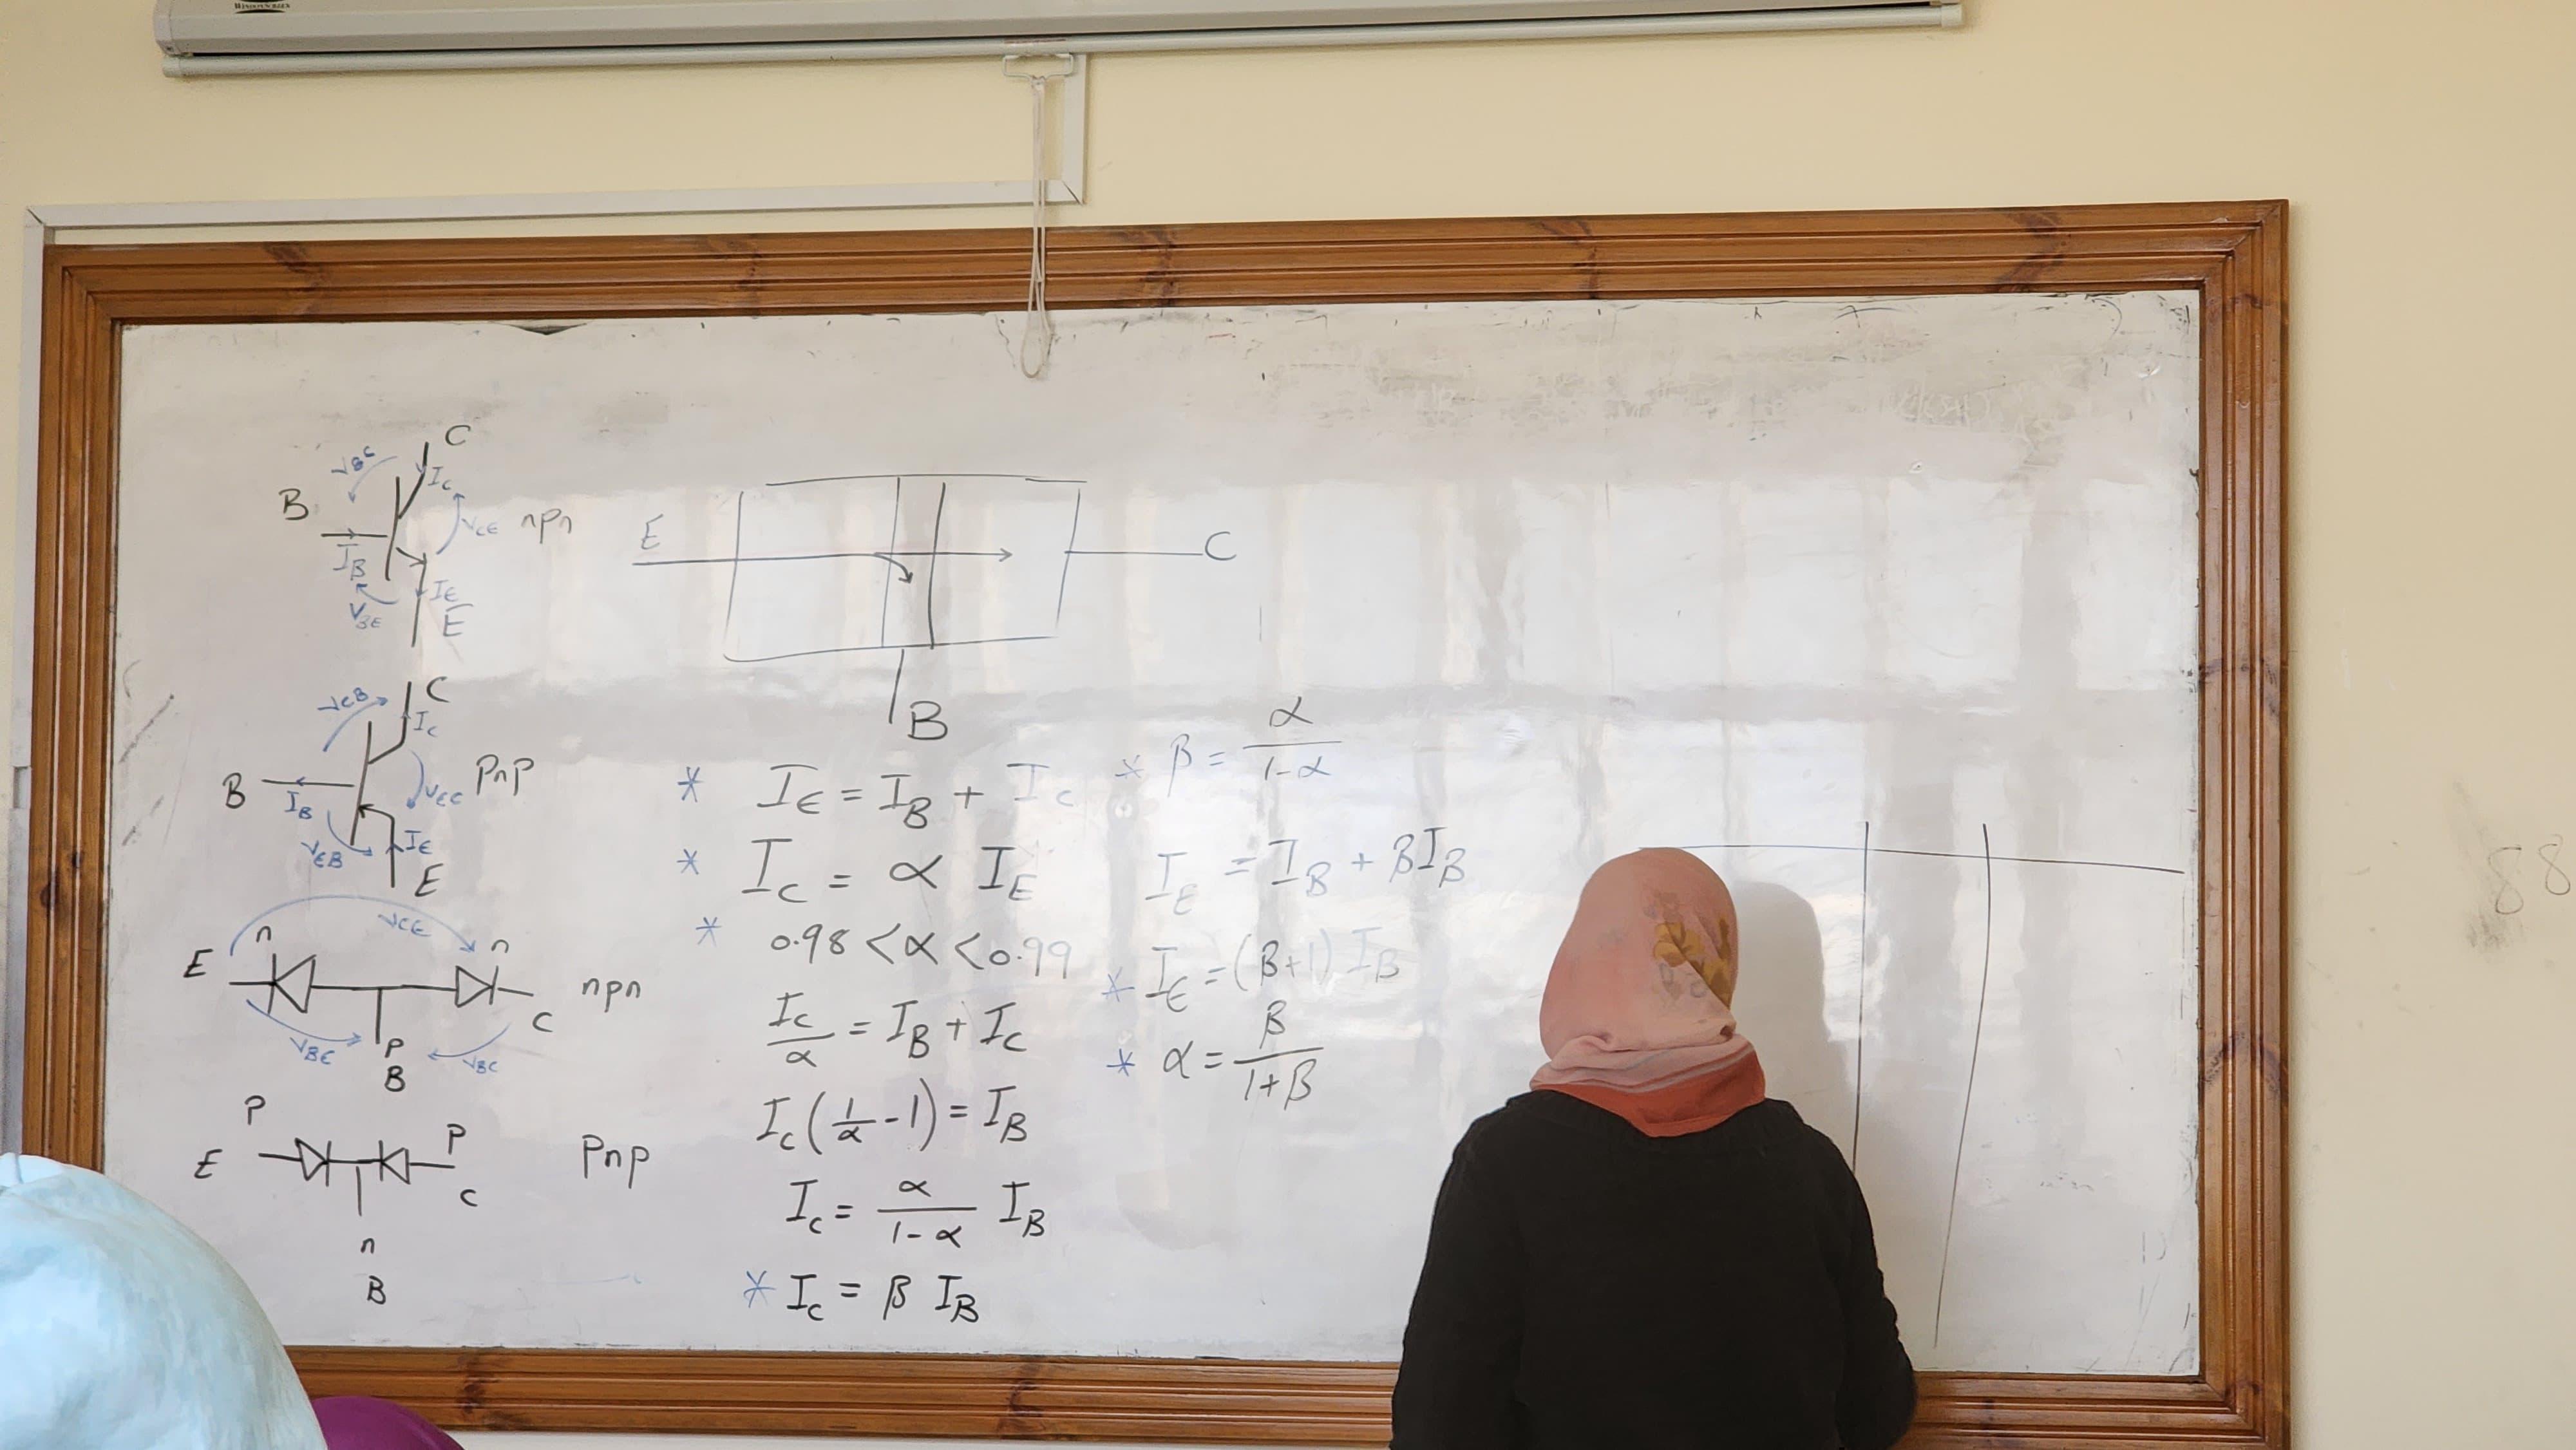 WINDOWSCREEN
C
VBC
IC
B
VCE
npn
IB
IE
VBE
E
E
C
B
VCB
C
IC
B
IB
VEC
pnp
VEB
IE
E
VCE
n
n
E
npn
C
VBE
P
VBC
B
P
P
E
pnp
C
n
B
* IE = IB + IC
* IC = α IE
* 0.98 < α < 0.99
IC/α = IB + IC
IC(1/α - 1) = IB
IC = α/(1-α) IB
* IC = β IB
* β = α/(1-α)
IE = IB + βIB
* IE = (β+1) IB
* α = β/(1+β)
88